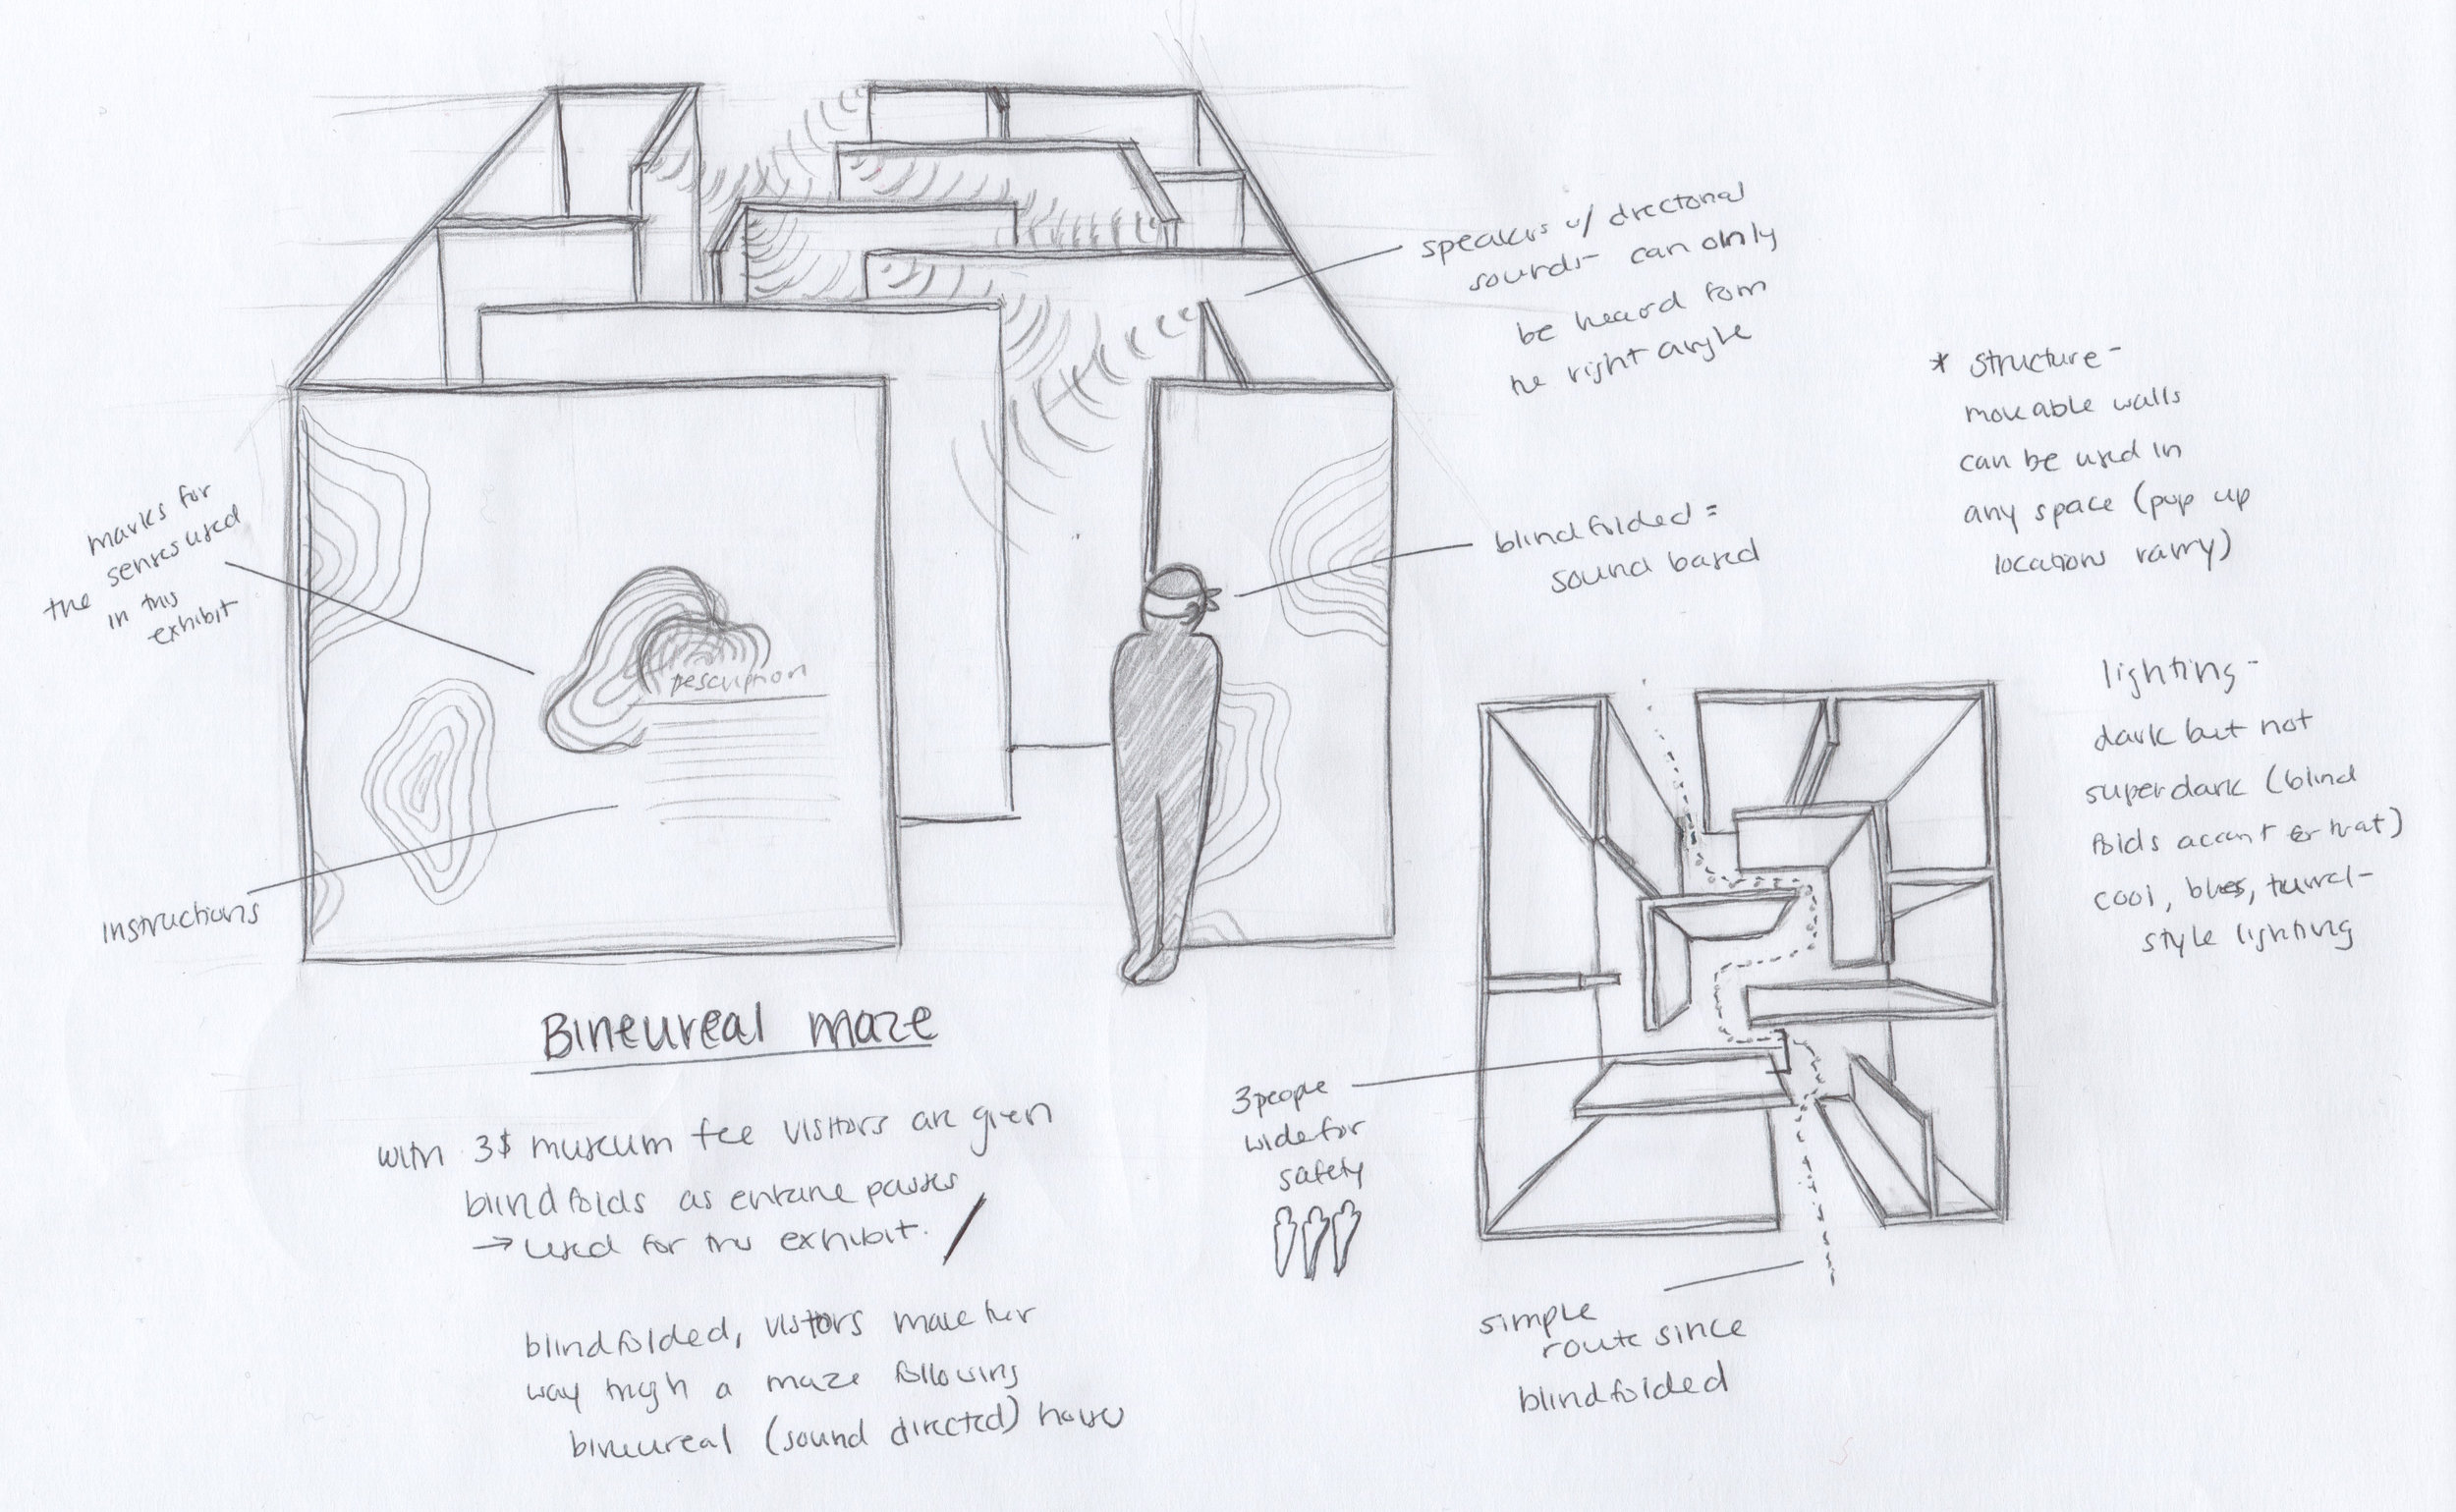 speakers w/ drectonal
sounds- can olnly
be heard fom
he right angle
* structure-
moveable walls
can be used in
any space (pop up
locations
marks for
the senses used
in this
exhibit
blindfolded =
sound based
Description
lighting-
dark but not
super dark (blind
folds
cool, blues, tunnel-
style lighting
instructions
Bineureal maze
3 people
wide for
safety
with 3$ museum fee visitors are given
blindfolds as
→ used for this exhibit.
simple
route since
blindfolded
blindfolded, visitors make
way a maze following
bineureal (sound directed)